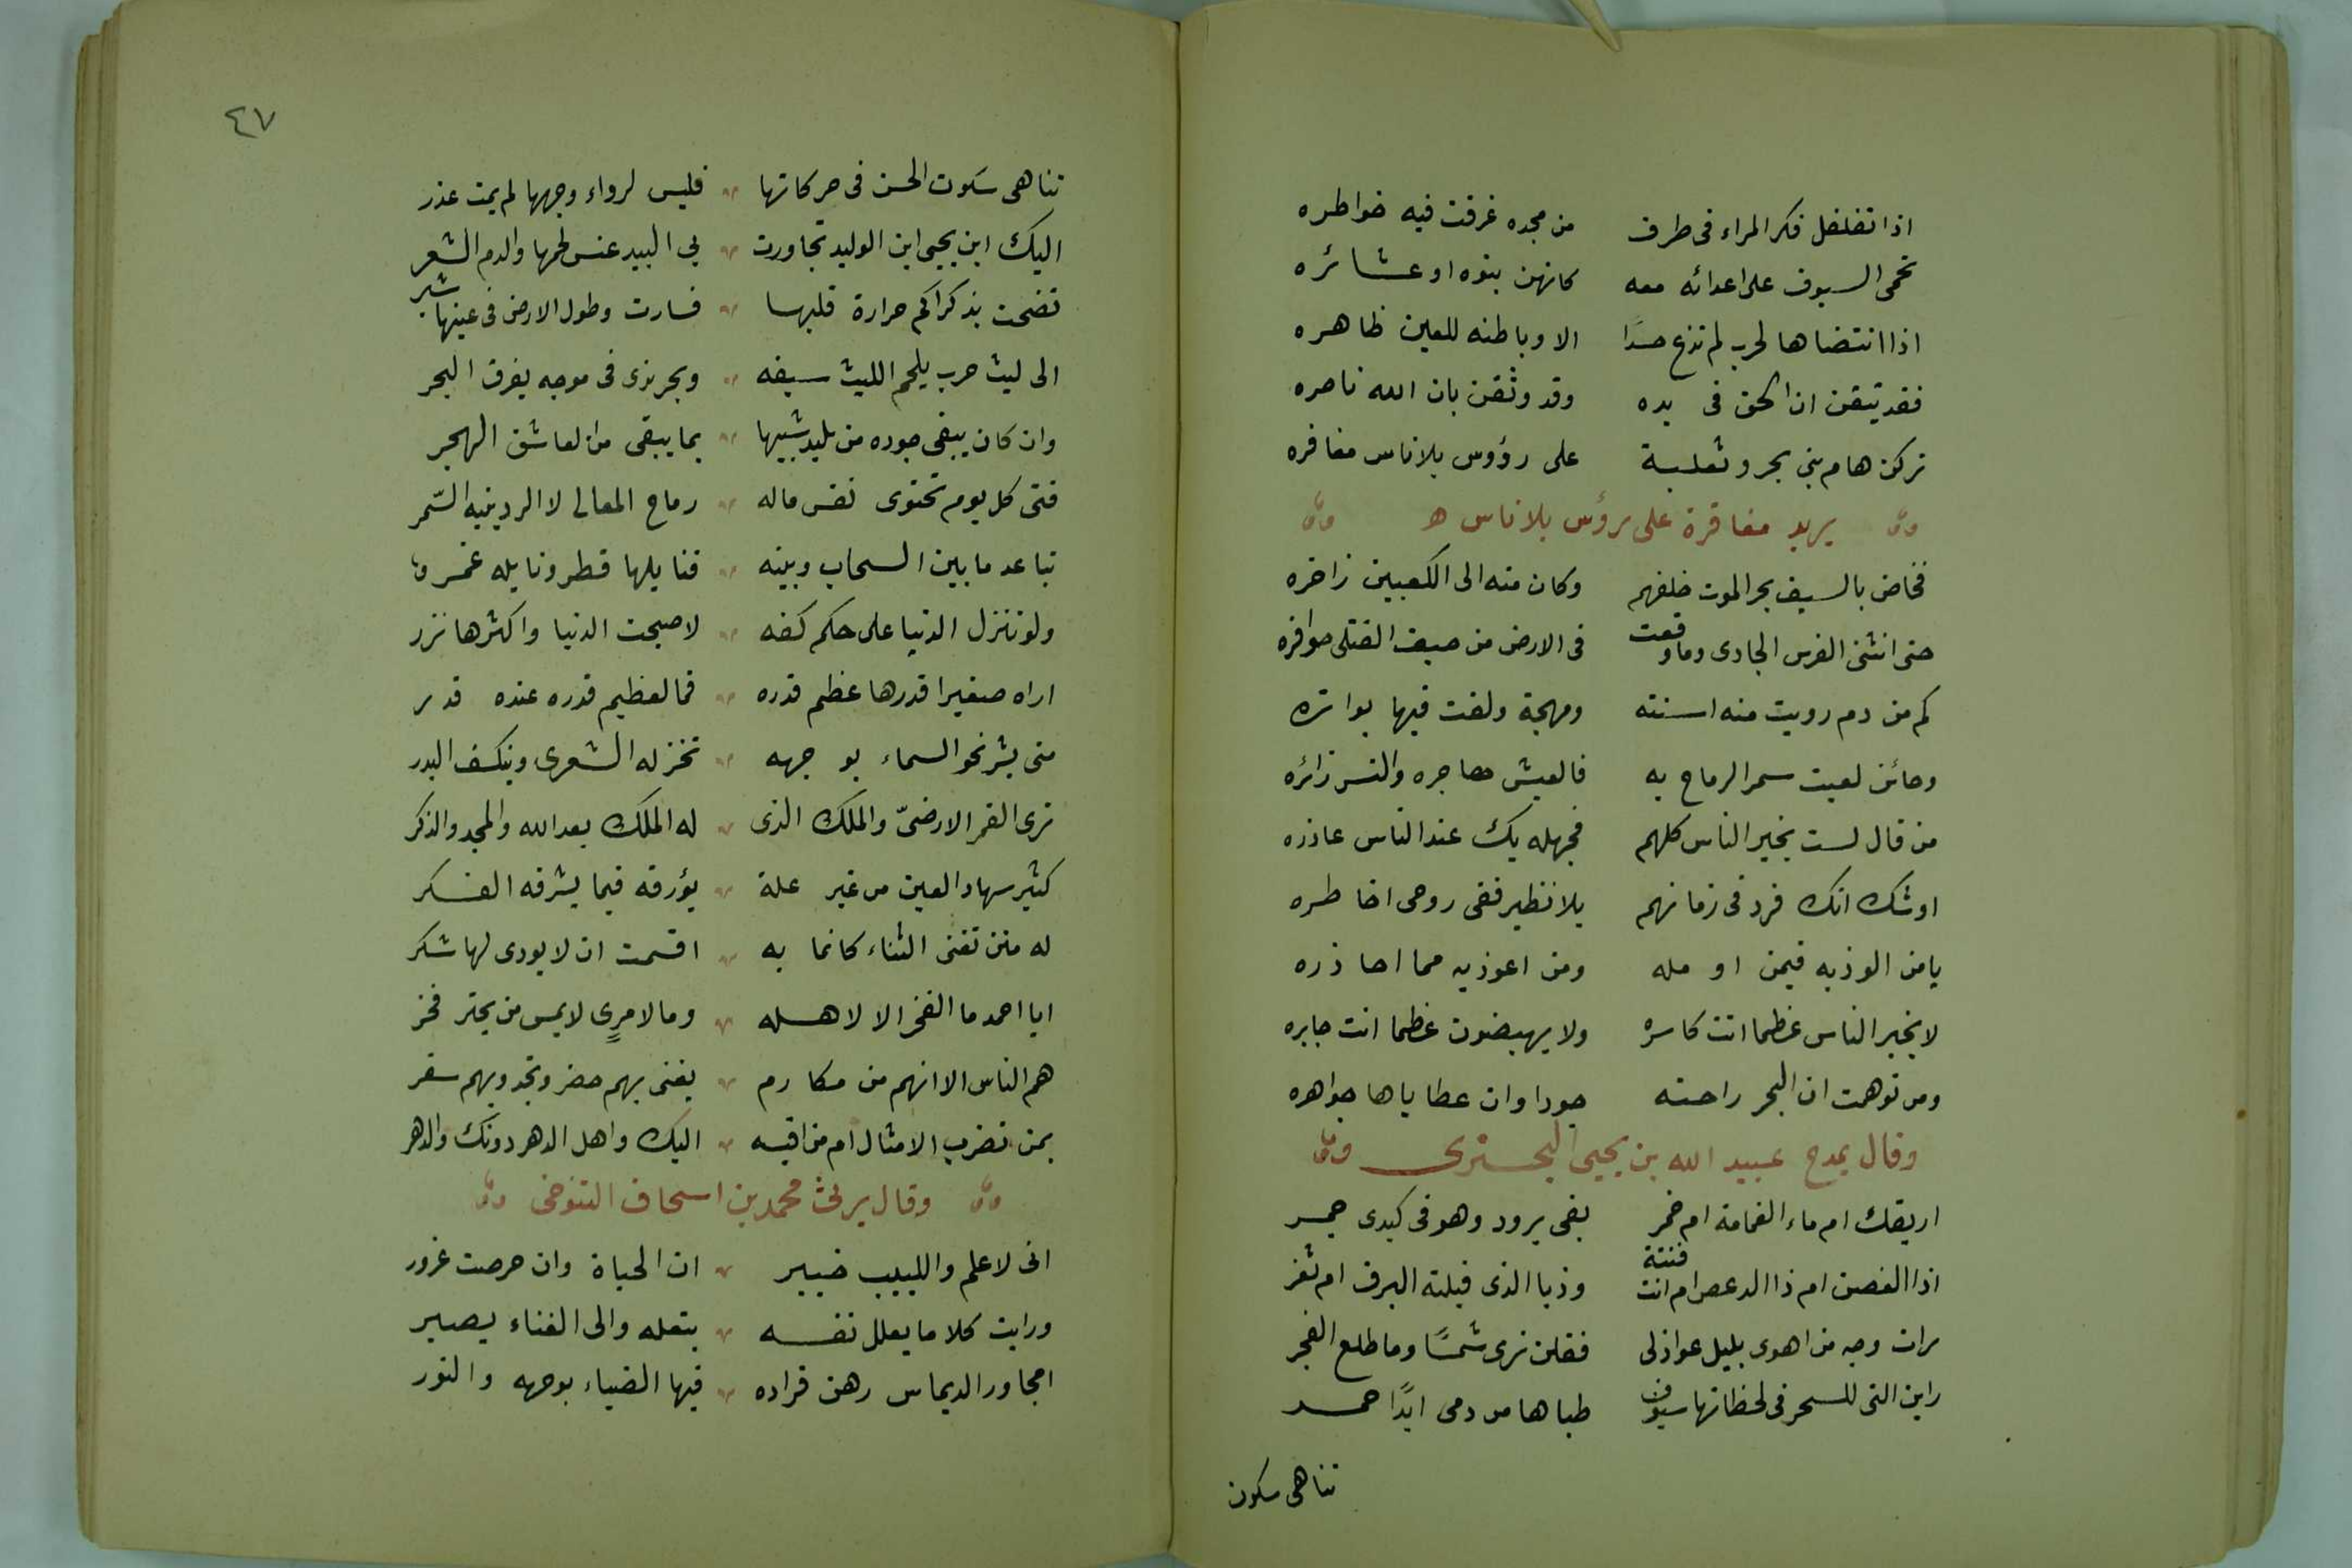 اذا تغلغل فكر المراء فى طرف من مجده غرقت فيه خواطره
تحمى السيوف على اعدائه معه كانهن بنوه او عشائره
اذا انتضاها لحرب لم تدع جسدًا الا وباطنه للعين ظاهره
فقد تيقن ان الحق فى يده وقد وثقن بان الله ناصره
تركن هام بنى بحر وثعلبة على رؤوس بلا ناس مغافره
يريد مغافره على رؤس بلا ناس ھ
فخاض بالسيف بحر الموت خلفهم وكان منه الى الكعبين زاخره
حتى انثنى الفرس الجارى وما وقعت فى الارض من جيف القتلى حوافره
كم من دم رويت منه اسنته ومهجة ولغت فيها بواتره
وحائن لعبت سمر الرماح به فالعيش هاجره والنسر زائره
من قال لست بخير الناس كلهم فجهله بك عند الناس عاذره
او شك انك فرد فى زمانهم بلا نظير ففى روحى اخاطره
يا من الوذ به فيمن او مله ومن اعوذ به مما احاذره
لا يجبر الناس عظما انت كاسره ولا يهيضون عظما انت جابره
ومن توهمت ان البحر راحته جودا وان عطاياها جواهره
وقال يمدح عبيد الله بن يحيى البحترى
اريقك ام ماء الغمامة ام خمر بفى برود وهو فى كبدى جمر
اذا الغصن ام ذا الدعص ام انت فتنة وذيا الذى قبلته البرق ام ثغر
رات وجه من اهوى بليل عواذلى فقلن نرى شمسًا وما طلع الفجر
راين التى للسحر فى لحظاتها سيوف ظباها من دمى ابدًا حمر
تناهى سكون
٤٧
تناهى سكون الحسن فى حركاتها فليس لرواء وجهها لم يمت عذر
اليك ابن يحيى ابن الوليد تجاورت بى البيد عنس لحمها والدم الشعر
نضحت بذكراكم حرارة قلبها فسارت وطول الارض فى عينها شبر
الى ليث حرب يلحم الليث سيفه وبحر ندى فى موجه يغرق البحر
وان كان يبقى جوده من تليد شبيها بما يبقى من العاشق الهجر
فتى كل يوم تحتوى نفس ماله رماح المعالى لا الردينيه السّمر
تباعد ما بين السحاب وبينه فنايلها قطر ونايله غمر
ولو تنزل الدنيا على حكم كفه لاصبحت الدنيا واكثرها نزر
اراه صغيرا قدرها عظم قدره فما لعظيم قدره عنده قدر
متى يشر نحو السماء بوجهه تخر له الشعرى وينكسف البدر
ترى القمر الارضىّ والملك الذى له الملك بعد الله والمجد والذكر
كثير سهاد العين من غير علة يؤرقه فيما يشرفه الفكر
له منن تفنى الثناء كانما به اقسمت ان لا يودى لها شكر
ايا احمد ما الفخر الا لاهله وما لامرءٍ لا يمس من بحتر فخر
هم الناس الا انهم من مكارم يغنى بهم حضر وتحدو بهم سفر
بمن تضرب الامثال ام من اقيسه اليك واهل الدهر دونك والدهر
وقال يرثى محمد بن اسحاق التنوخى
انى لاعلم واللبيب خبير ان الحياة وان حرصت غرور
ورايت كلا ما يعلل نفسه بتعله والى الفناء يصير
امجاور الديماس رهن قراره فيها الضياء بوجهه والنور